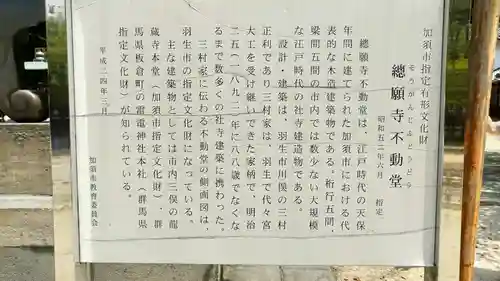 加須市指定有形文化財
そうがんじふどうどう
總願寺不動堂
昭和五二年六月　指定
總願寺不動堂は、江戸時代の天保
年間に建てられた加須市における代
表的な木造建築物である。桁行五間、
梁間五間の市内では数少ない大規模
な江戸時代の社寺建造物である。
設計・建築は、羽生市川俣の三村
正利であり三村家は、羽生で代々宮
大工を受け継いできた家柄で、明治
二五（一八九二）年に八八歳で亡くな
るまで数多くの社寺建築に携わった。
三村家に伝わる不動堂の側面図は、
羽生市の指定文化財になっている。
主な建築物としては市内三俣の龍
蔵寺本堂（加須市指定文化財）、群
馬県板倉町の雷電神社本社（群馬県
指定文化財）が知られている。
平成二四年三月
加須市教育委員会